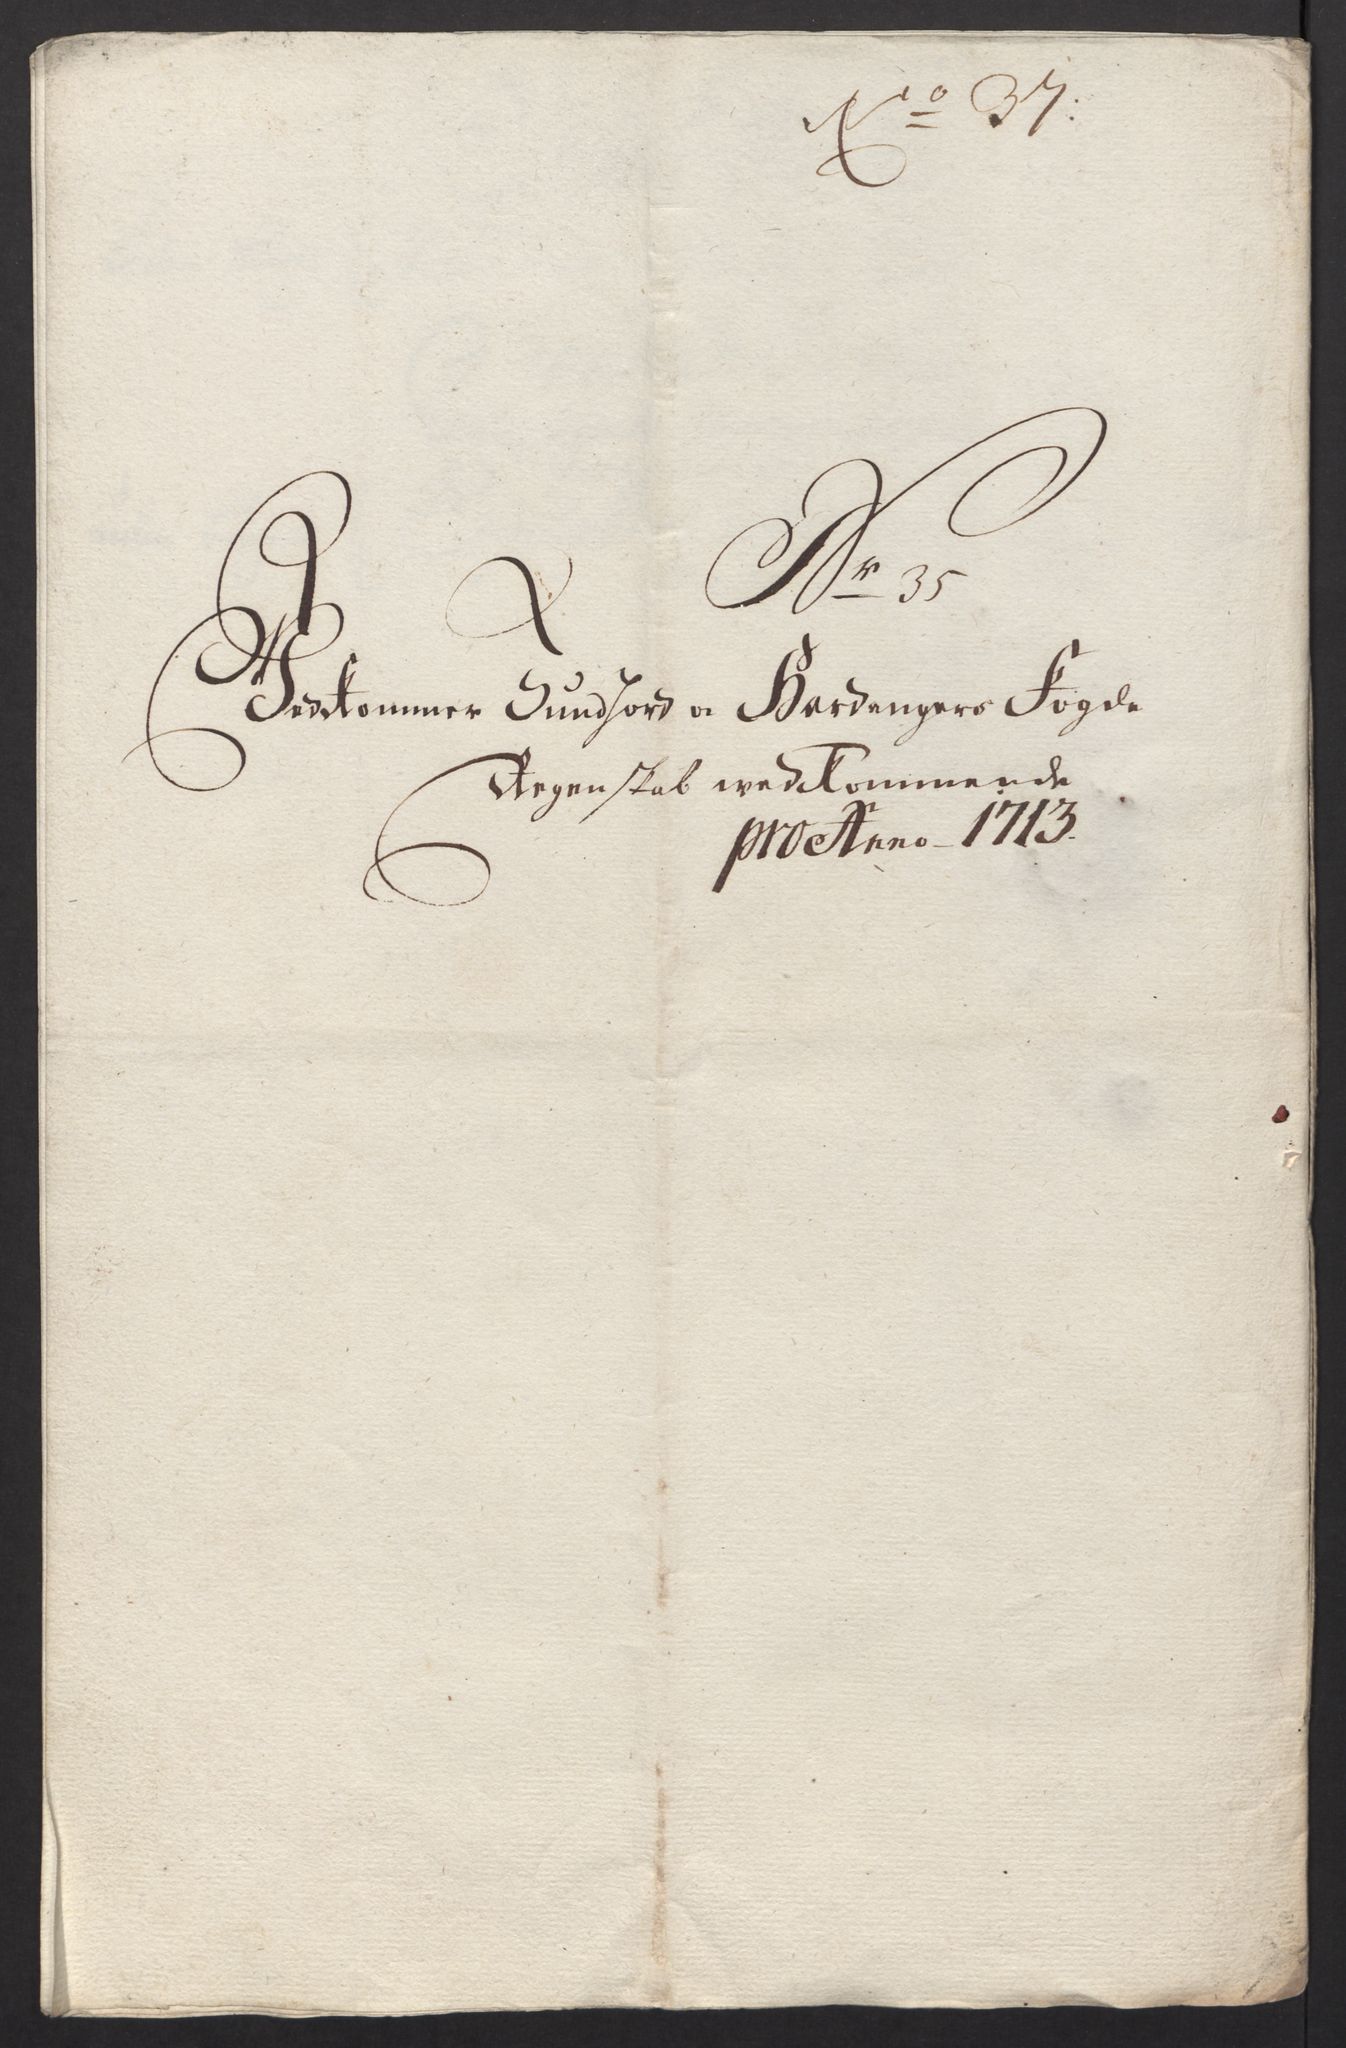 No 37:
Nr 35
Vedkommer Sundhord o Hardangers Fogde
Regenskab wedkommende
pro Anno 1713.